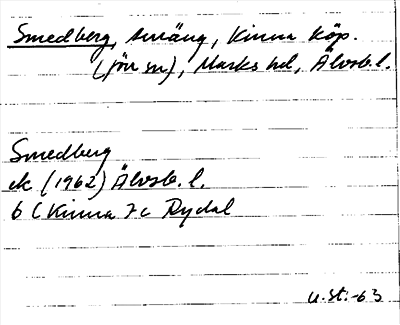 Smedberg, småäng, Kinna köp.
(för sn), Marks hd, Älvsb. l.
Smedberg
ek (1962) Älvsb. l.
6 C Kinna 7 c Rydal
u.st.-63